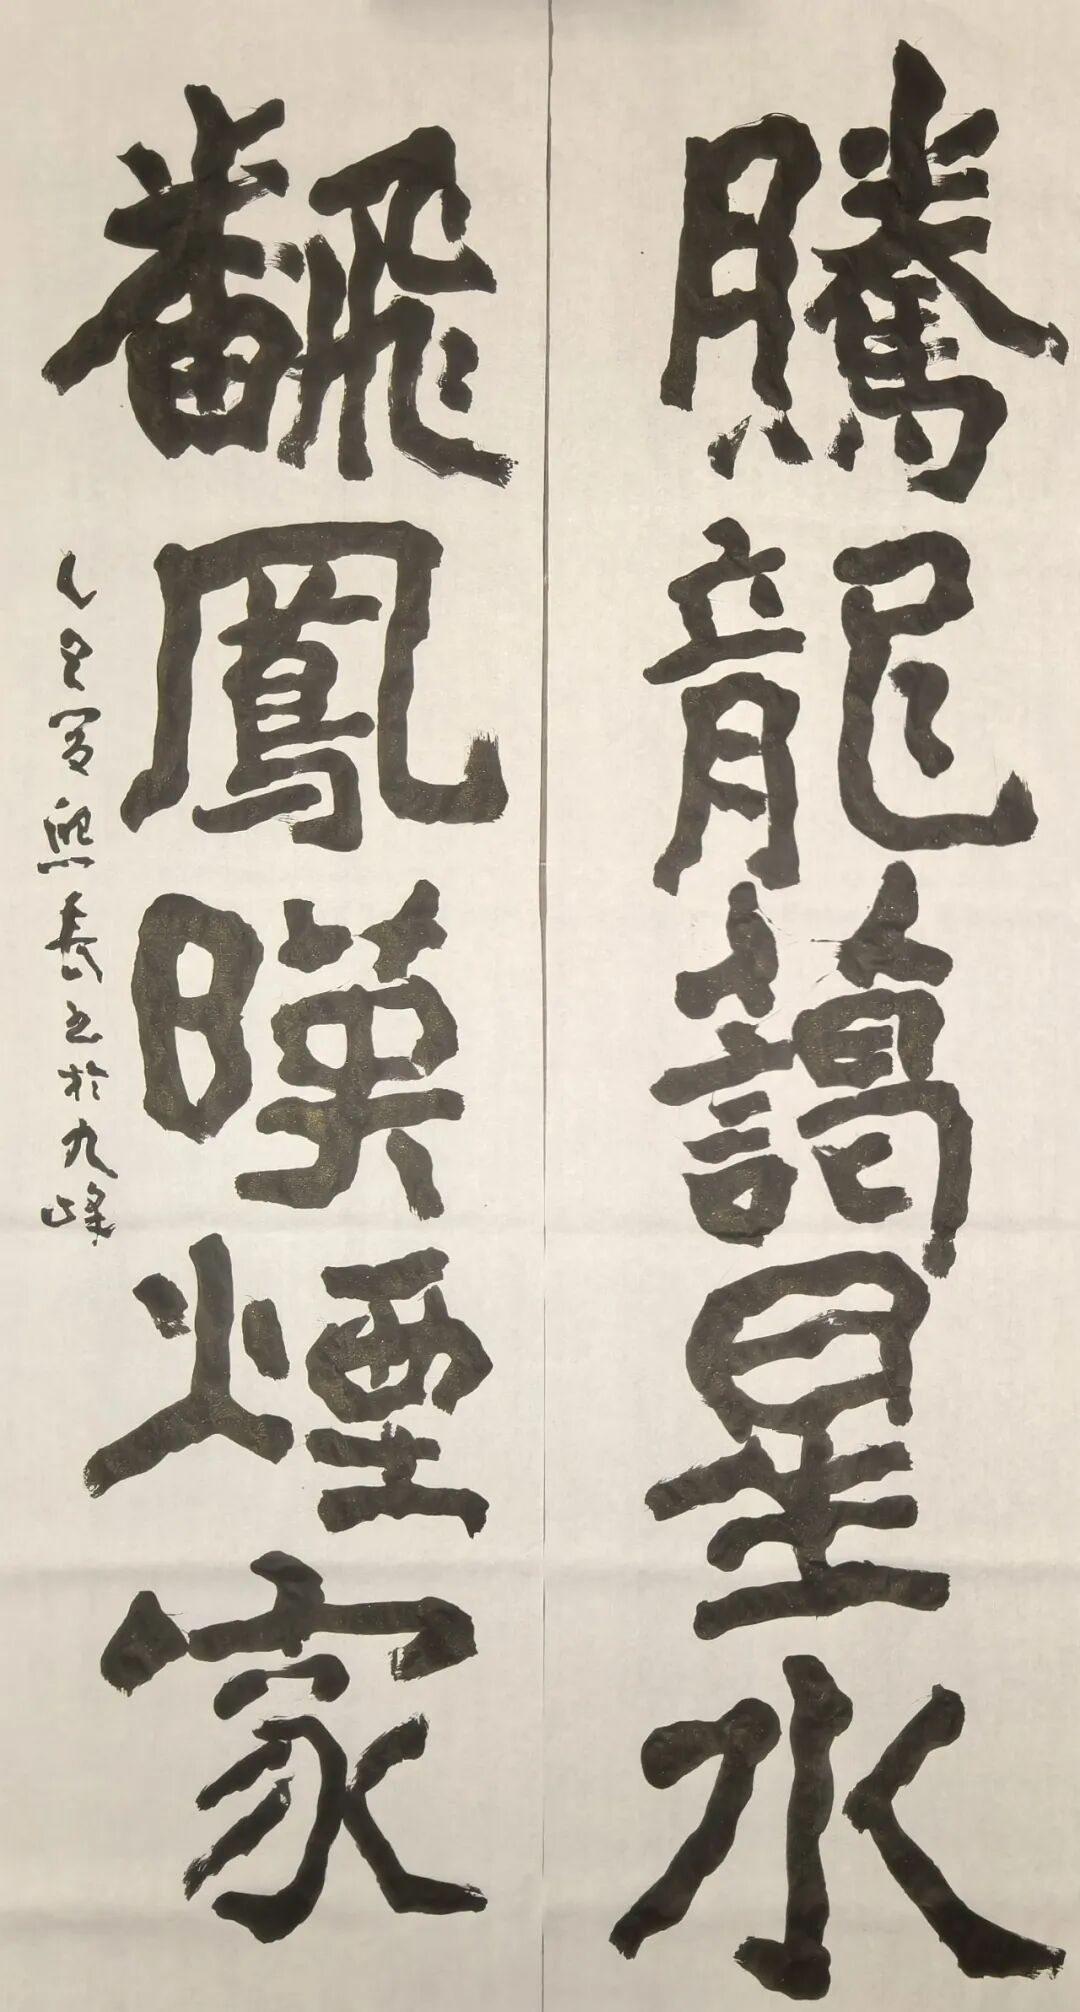 騰龍藹星水
飜鳳暎煙家
乙巳夏熙長書於九峰